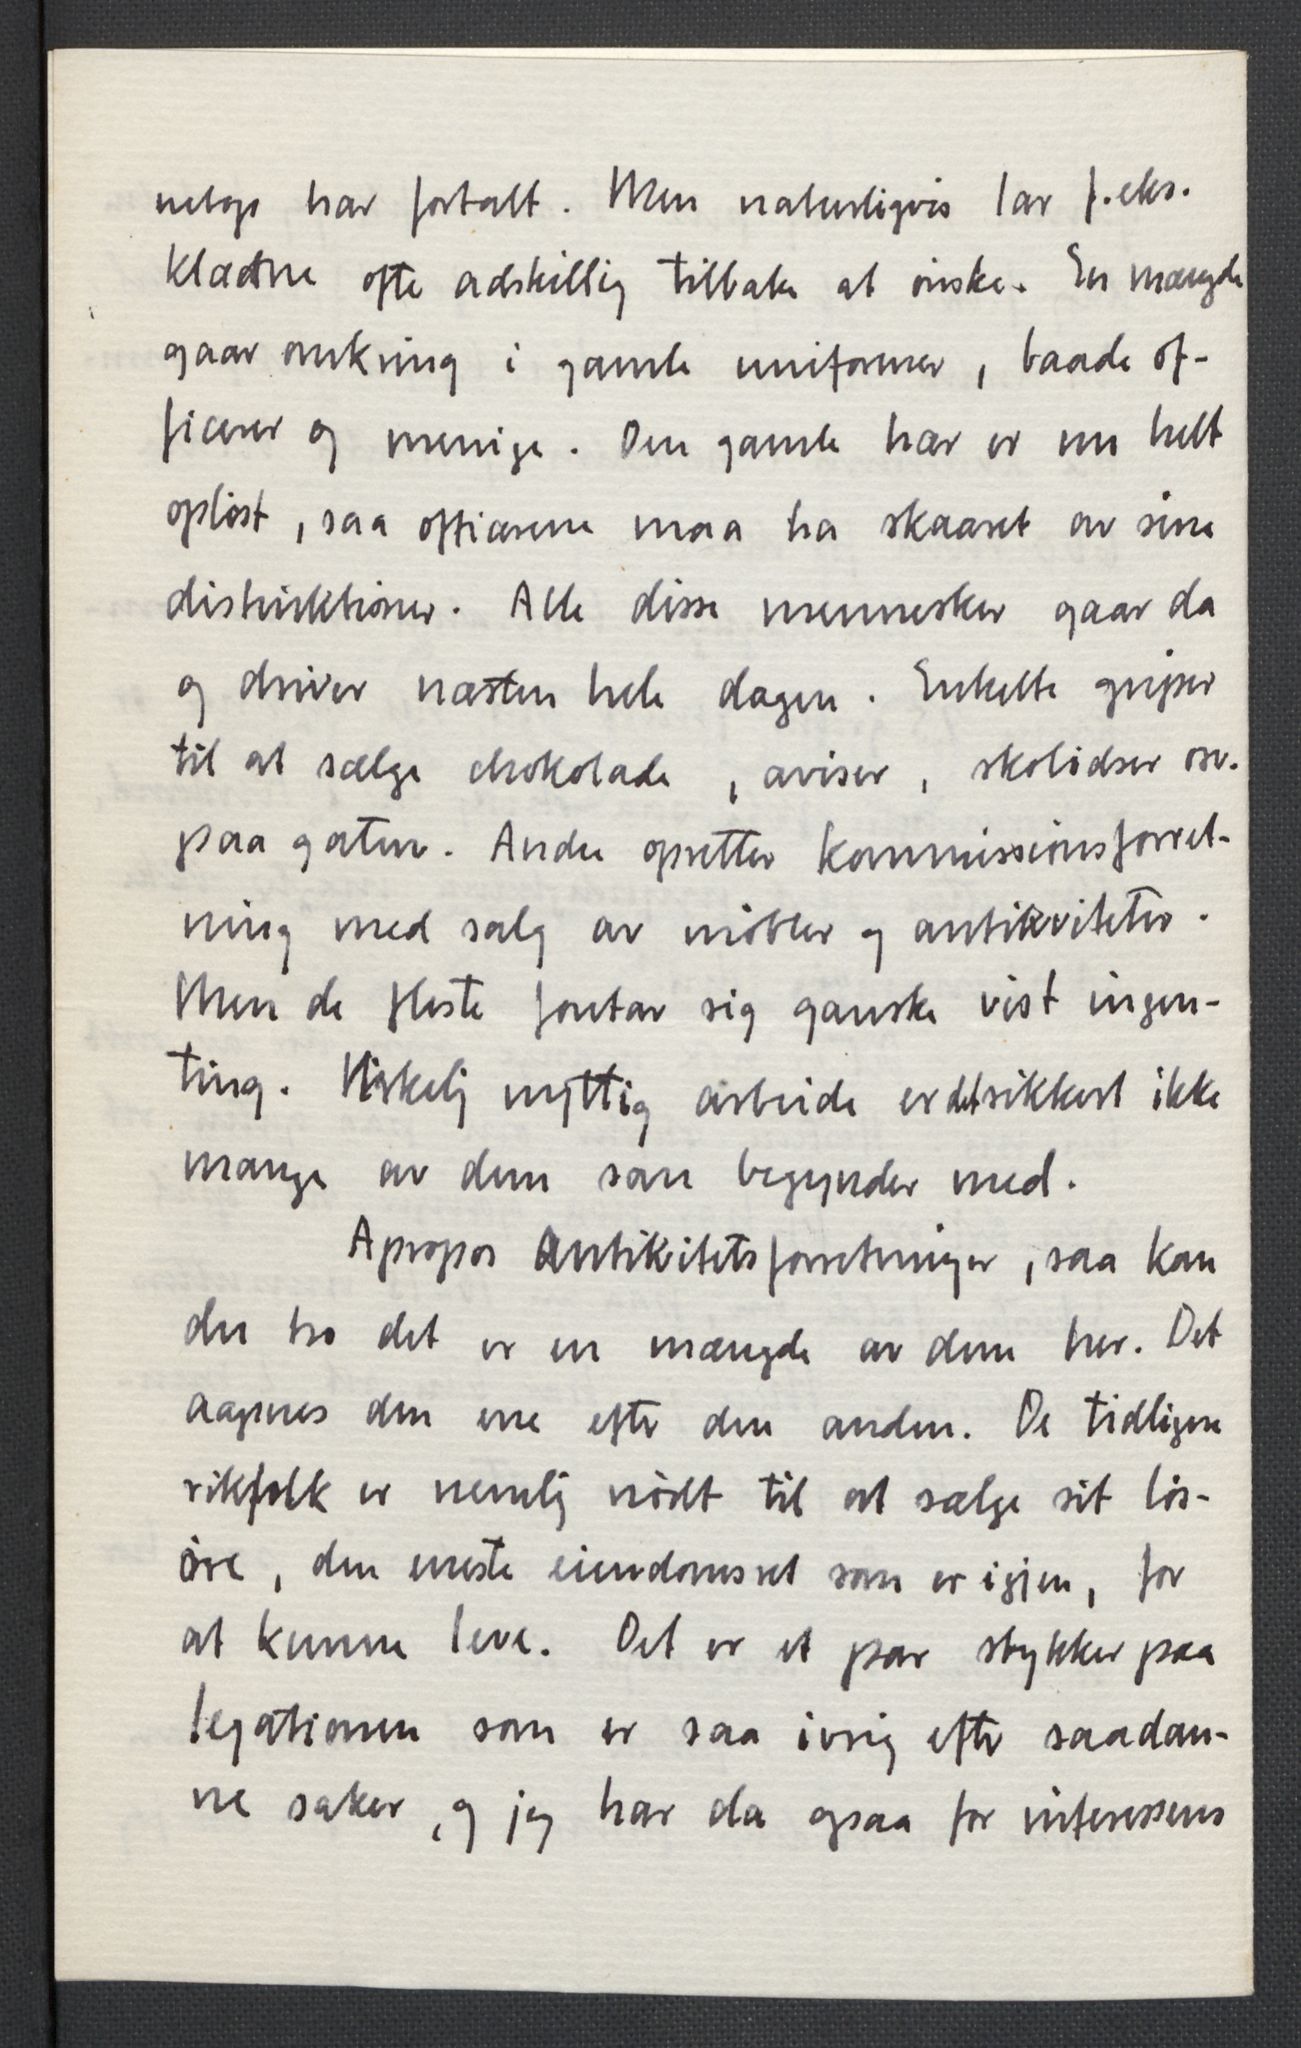 netop har fortalt. Men naturligvis lar f.eks.
klædtne ofte adskillig tilbake at ønske. En mængde
gaar omkring i gamle uniformer, baade of-
ficerer og menige. Den gamle hær er nu helt
opløst, saa officerene maa ha skaaret av sine
distinktioner. Alle disse mennesker gaar da
og driver næsten hele dagen. Enkelte griper
til at sælge chokolade, aviser, skolidser osv.
paa gaten. Andre opretter kommissionsforret-
ning med salg av møbler og antikviteter.
Men de fleste foretar sig ganske vist ingen-
ting. Virkelig nyttig arbeide er det sikkert ikke
mange av dem som begynder med.
Apropos Antikvitetsforretninger, saa kan
du tro det er en mængde av dem her. Det
aapnes den ene efter den anden. De tidligere
rikfolk er nemlig nødt til at sælge sit løs-
øre, den eneste eiendomsret som er igjen, for
at kunne leve. Det er et par stykker paa
legationen som er saa ivrig efter saadan-
ne saker, og jeg har da ogsaa for interessens